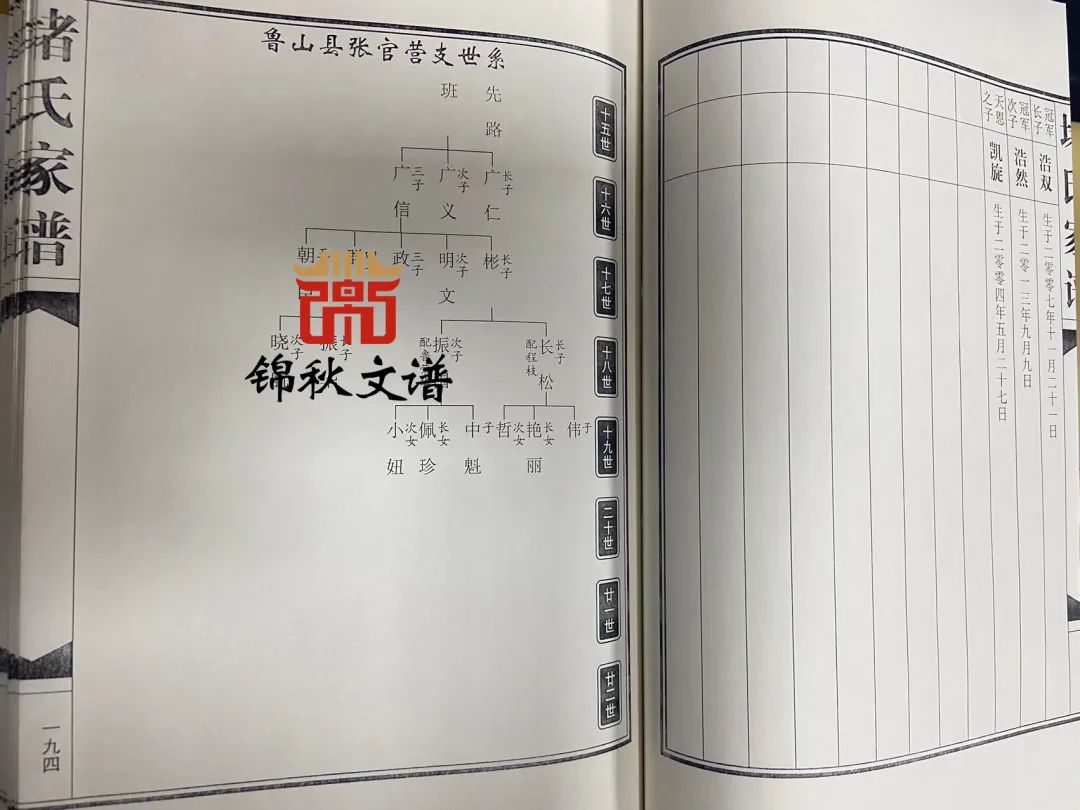 氏家谱
鲁山县张官营支世系
先路
班
十五世
长子 广仁
次子 广义
三子 广信
十六世
长子 彬
次子 明文
三子 政
朝
十七世
长子 长松 配程枝
次子 振
次子 晓
振
十八世
子 伟
长女 艳丽
次女 哲
子 中魁
长女 佩珍
次女 小妞
十九世
二十世
廿一世
廿二世
一九四
锦秋文谱
氏家
冠军长子 浩双 生于二零零七年十一月二十一日
冠军次子 浩然 生于二零一三年九月九日
天恩之子 凯旋 生于二零零四年五月二十七日